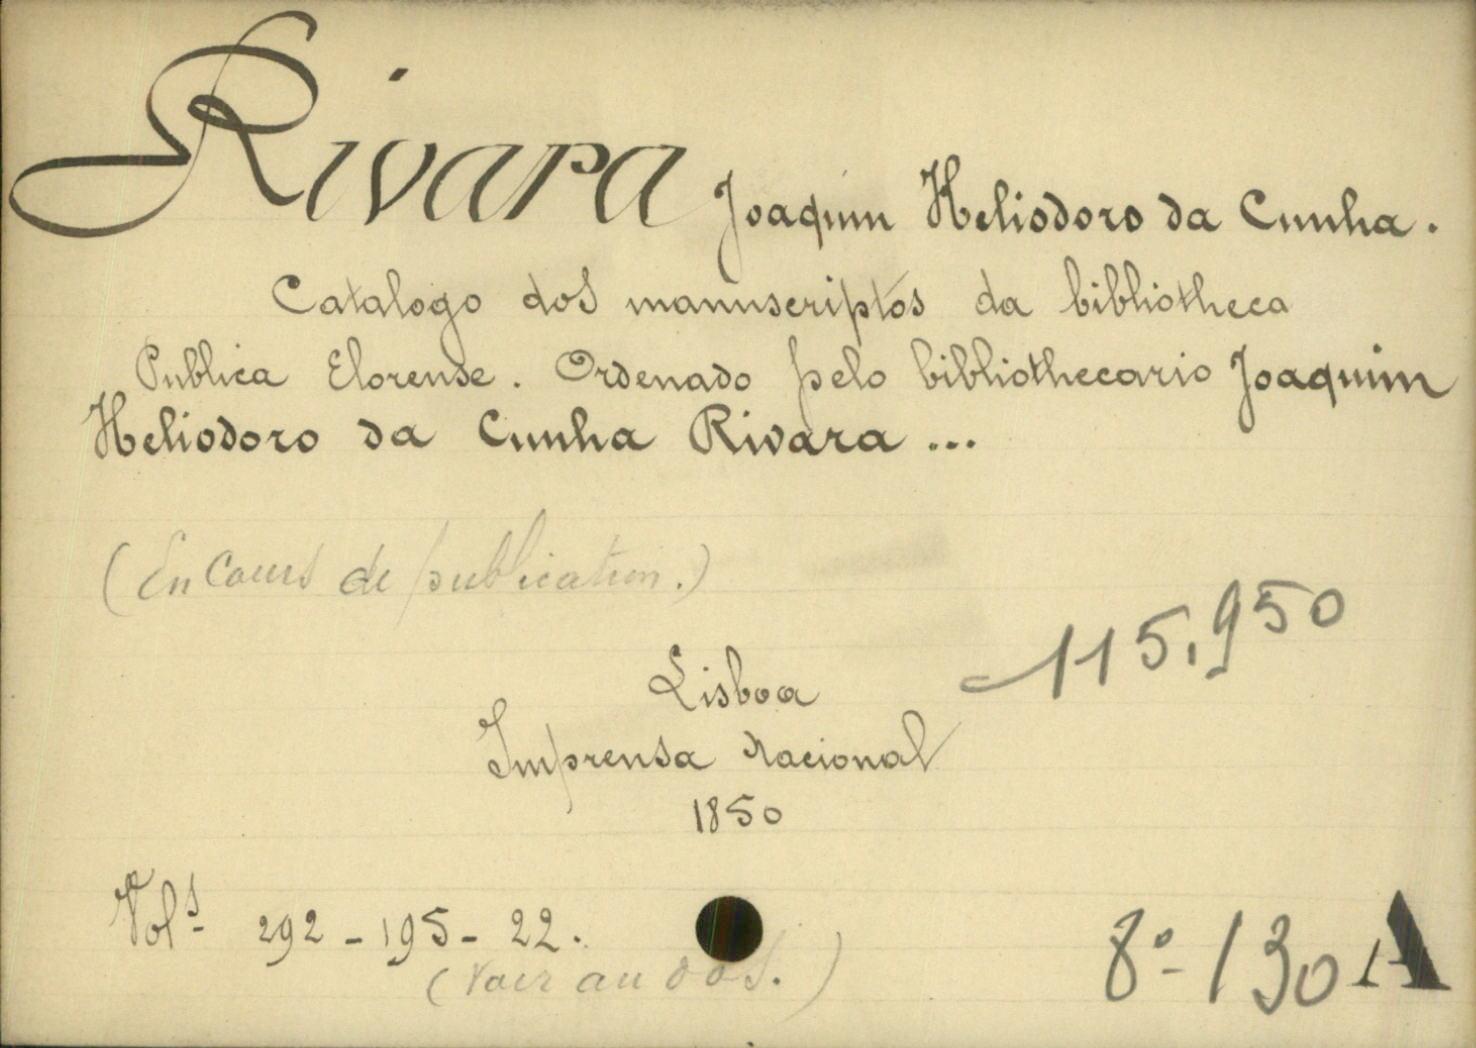 Rivara Joaquim Heliodoro da Cunha.
Catalogo dos manuscriptos da bibliotheca
Publica Elorense. Ordenado pelo bibliothecario Joaquim
Heliodoro da Cunha Rivara ...
(En Cours de publication.)
115.950
Lisboa
Imprensa Nacional
1850
Vols 292 - 195 - 22.
(Voir au dos.)
8º - 130 A